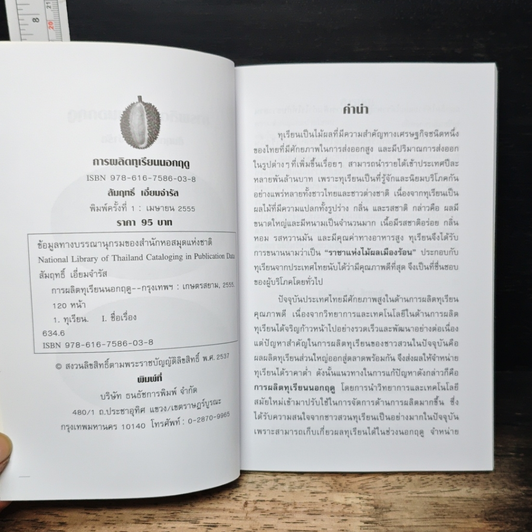 การผลิตทุเรียนนอกฤดู
ISBN 978-616-7586-03-8
สัมฤทธิ์ เอี่ยมจำรัส
พิมพ์ครั้งที่ 1 : เมษายน 2555
ราคา 95 บาท
ข้อมูลทางบรรณานุกรมของสำนักหอสมุดแห่งชาติ
National Library of Thailand Cataloging in Publication Data
สัมฤทธิ์ เอี่ยมจำรัส
การผลิตทุเรียนนอกฤดู--กรุงเทพฯ : เกษตรสยาม, 2555.
120 หน้า
1. ทุเรียน. I. ชื่อเรื่อง
634.6
ISBN 978-616-7586-03-8
© สงวนลิขสิทธิ์ตามพระราชบัญญัติลิขสิทธิ์ พ.ศ. 2537
พิมพ์ที่
บริษัท ธนธัชการพิมพ์ จำกัด
480/1 ถ.ประชาอุทิศ แขวง/เขตราษฎร์บูรณะ
กรุงเทพมหานคร 10140 โทรศัพท์ : 0-2870-9961
คำนำ
ทุเรียนเป็นไม้ผลที่มีความสำคัญทางเศรษฐกิจชนิดหนึ่ง
ของไทยที่มีศักยภาพในการส่งออกสูง และมีปริมาณการส่งออก
ในรูปต่างๆ ที่เพิ่มขึ้นเรื่อยๆ สามารถนำรายได้เข้าประเทศปีละ
หลายพันล้านบาท เพราะทุเรียนเป็นที่รู้จักและนิยมบริโภคกัน
อย่างแพร่หลายทั้งชาวไทยและชาวต่างชาติ เนื่องจากทุเรียนเป็น
ผลไม้ที่มีความแปลกทั้งรูปร่าง กลิ่น และรสชาติ กล่าวคือ ผลมี
ขนาดใหญ่และมีหนามเป็นจำนวนมาก เนื้อมีรสชาติอร่อย กลิ่น
หอม รสหวานมัน และมีคุณค่าทางอาหารสูง ทุเรียนจึงได้รับ
การขนานนามว่าเป็น "ราชาแห่งไม้ผลเมืองร้อน" ประกอบกับ
ทุเรียนจากประเทศไทยนับได้ว่ามีคุณภาพดีที่สุด จึงเป็นที่ชื่นชอบ
ของผู้บริโภคโดยทั่วไป
ปัจจุบันประเทศไทยมีศักยภาพสูงในด้านการผลิตทุเรียน
คุณภาพดี เนื่องจากวิทยาการและเทคโนโลยีในด้านการผลิต
ทุเรียนได้เจริญก้าวหน้าไปอย่างรวดเร็วและพัฒนาอย่างต่อเนื่อง
แต่ปัญหาสำคัญในการผลิตทุเรียนของชาวสวนในปัจจุบันคือ
ผลผลิตทุเรียนส่วนใหญ่ออกสู่ตลาดพร้อมกัน จึงส่งผลให้จำหน่าย
ทุเรียนได้ราคาต่ำ ดังนั้นแนวทางในการแก้ปัญหาดังกล่าวก็คือ
การผลิตทุเรียนนอกฤดู โดยการนำวิทยาการและเทคโนโลยี
สมัยใหม่เข้ามาปรับใช้ในการจัดการด้านการผลิตมากขึ้น ซึ่ง
ได้รับความสนใจจากชาวสวนทุเรียนเป็นอย่างมากในปัจจุบัน
เพราะสามารถเก็บเกี่ยวผลทุเรียนได้ในช่วงนอกฤดู จำหน่าย